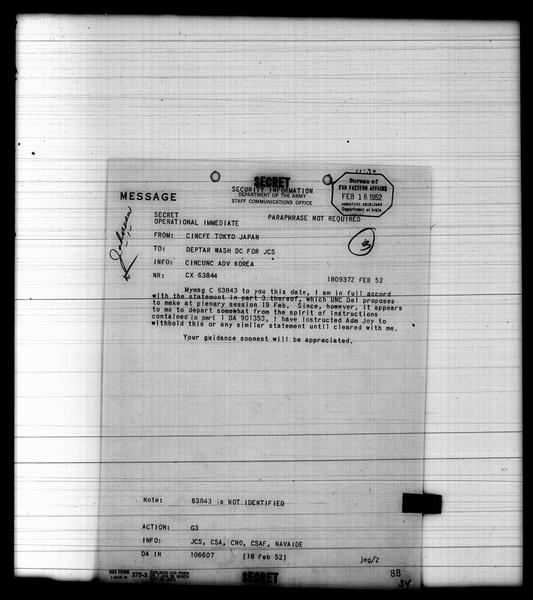 11:30
SECRET
SECURITY INFORMATION
DEPARTMENT OF THE ARMY
STAFF COMMUNICATIONS OFFICE
Bureau of
FAR EASTERN AFFAIRS
FEB 18 1952
Department of State
MESSAGE
SECRET
OPERATIONAL IMMEDIATE
PARAPHRASE NOT REQUIRED
Johnson
FROM: CINCFE TOKYO JAPAN
3
TO: DEPTAR WASH DC FOR JCS
INFO: CINCUNC ADV KOREA
NR: CX 63844
180937Z FEB 52
Mymsg C 63843 to you this date, I am in full accord
with the statement in part 3 thereof, which UNC Del proposes
to make at plenary session 19 Feb. Since, however, it appears
to me to depart somewhat from the spirit of instructions
contained in part 1 DA 901353, I have instructed Adm Joy to
withhold this or any similar statement until cleared with me.
Your guidance soonest will be appreciated.
Note: 63843 is NOT IDENTIFIED
ACTION: G3
INFO: JCS, CSA, CNO, CSAF, NAVAIDE
DA IN 106607 (18 Feb 52)
jeg/2
375-3
SECRET
88
34